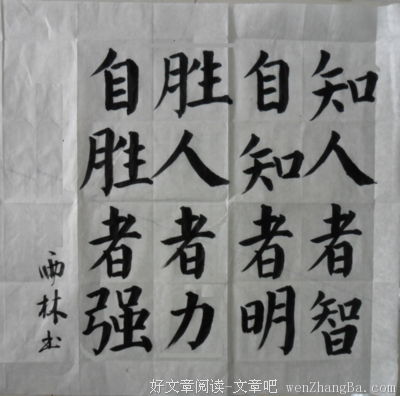 知人者智
自知者明
胜人者力
自胜者强
雨林书
好文章阅读-文章吧 wenZhangBa.com